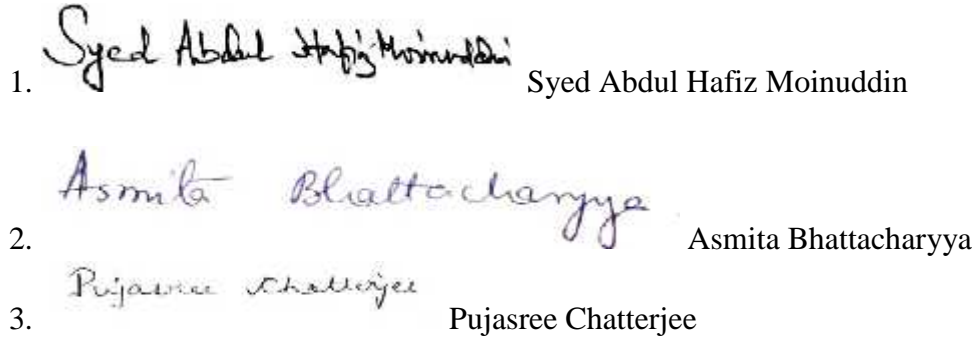 1. Syed Abdul Hafiz Moinuddin Syed Abdul Hafiz Moinuddin
2. Asmita Bhattacharyya Asmita Bhattacharyya
3. Pujasree Chatterjee Pujasree Chatterjee